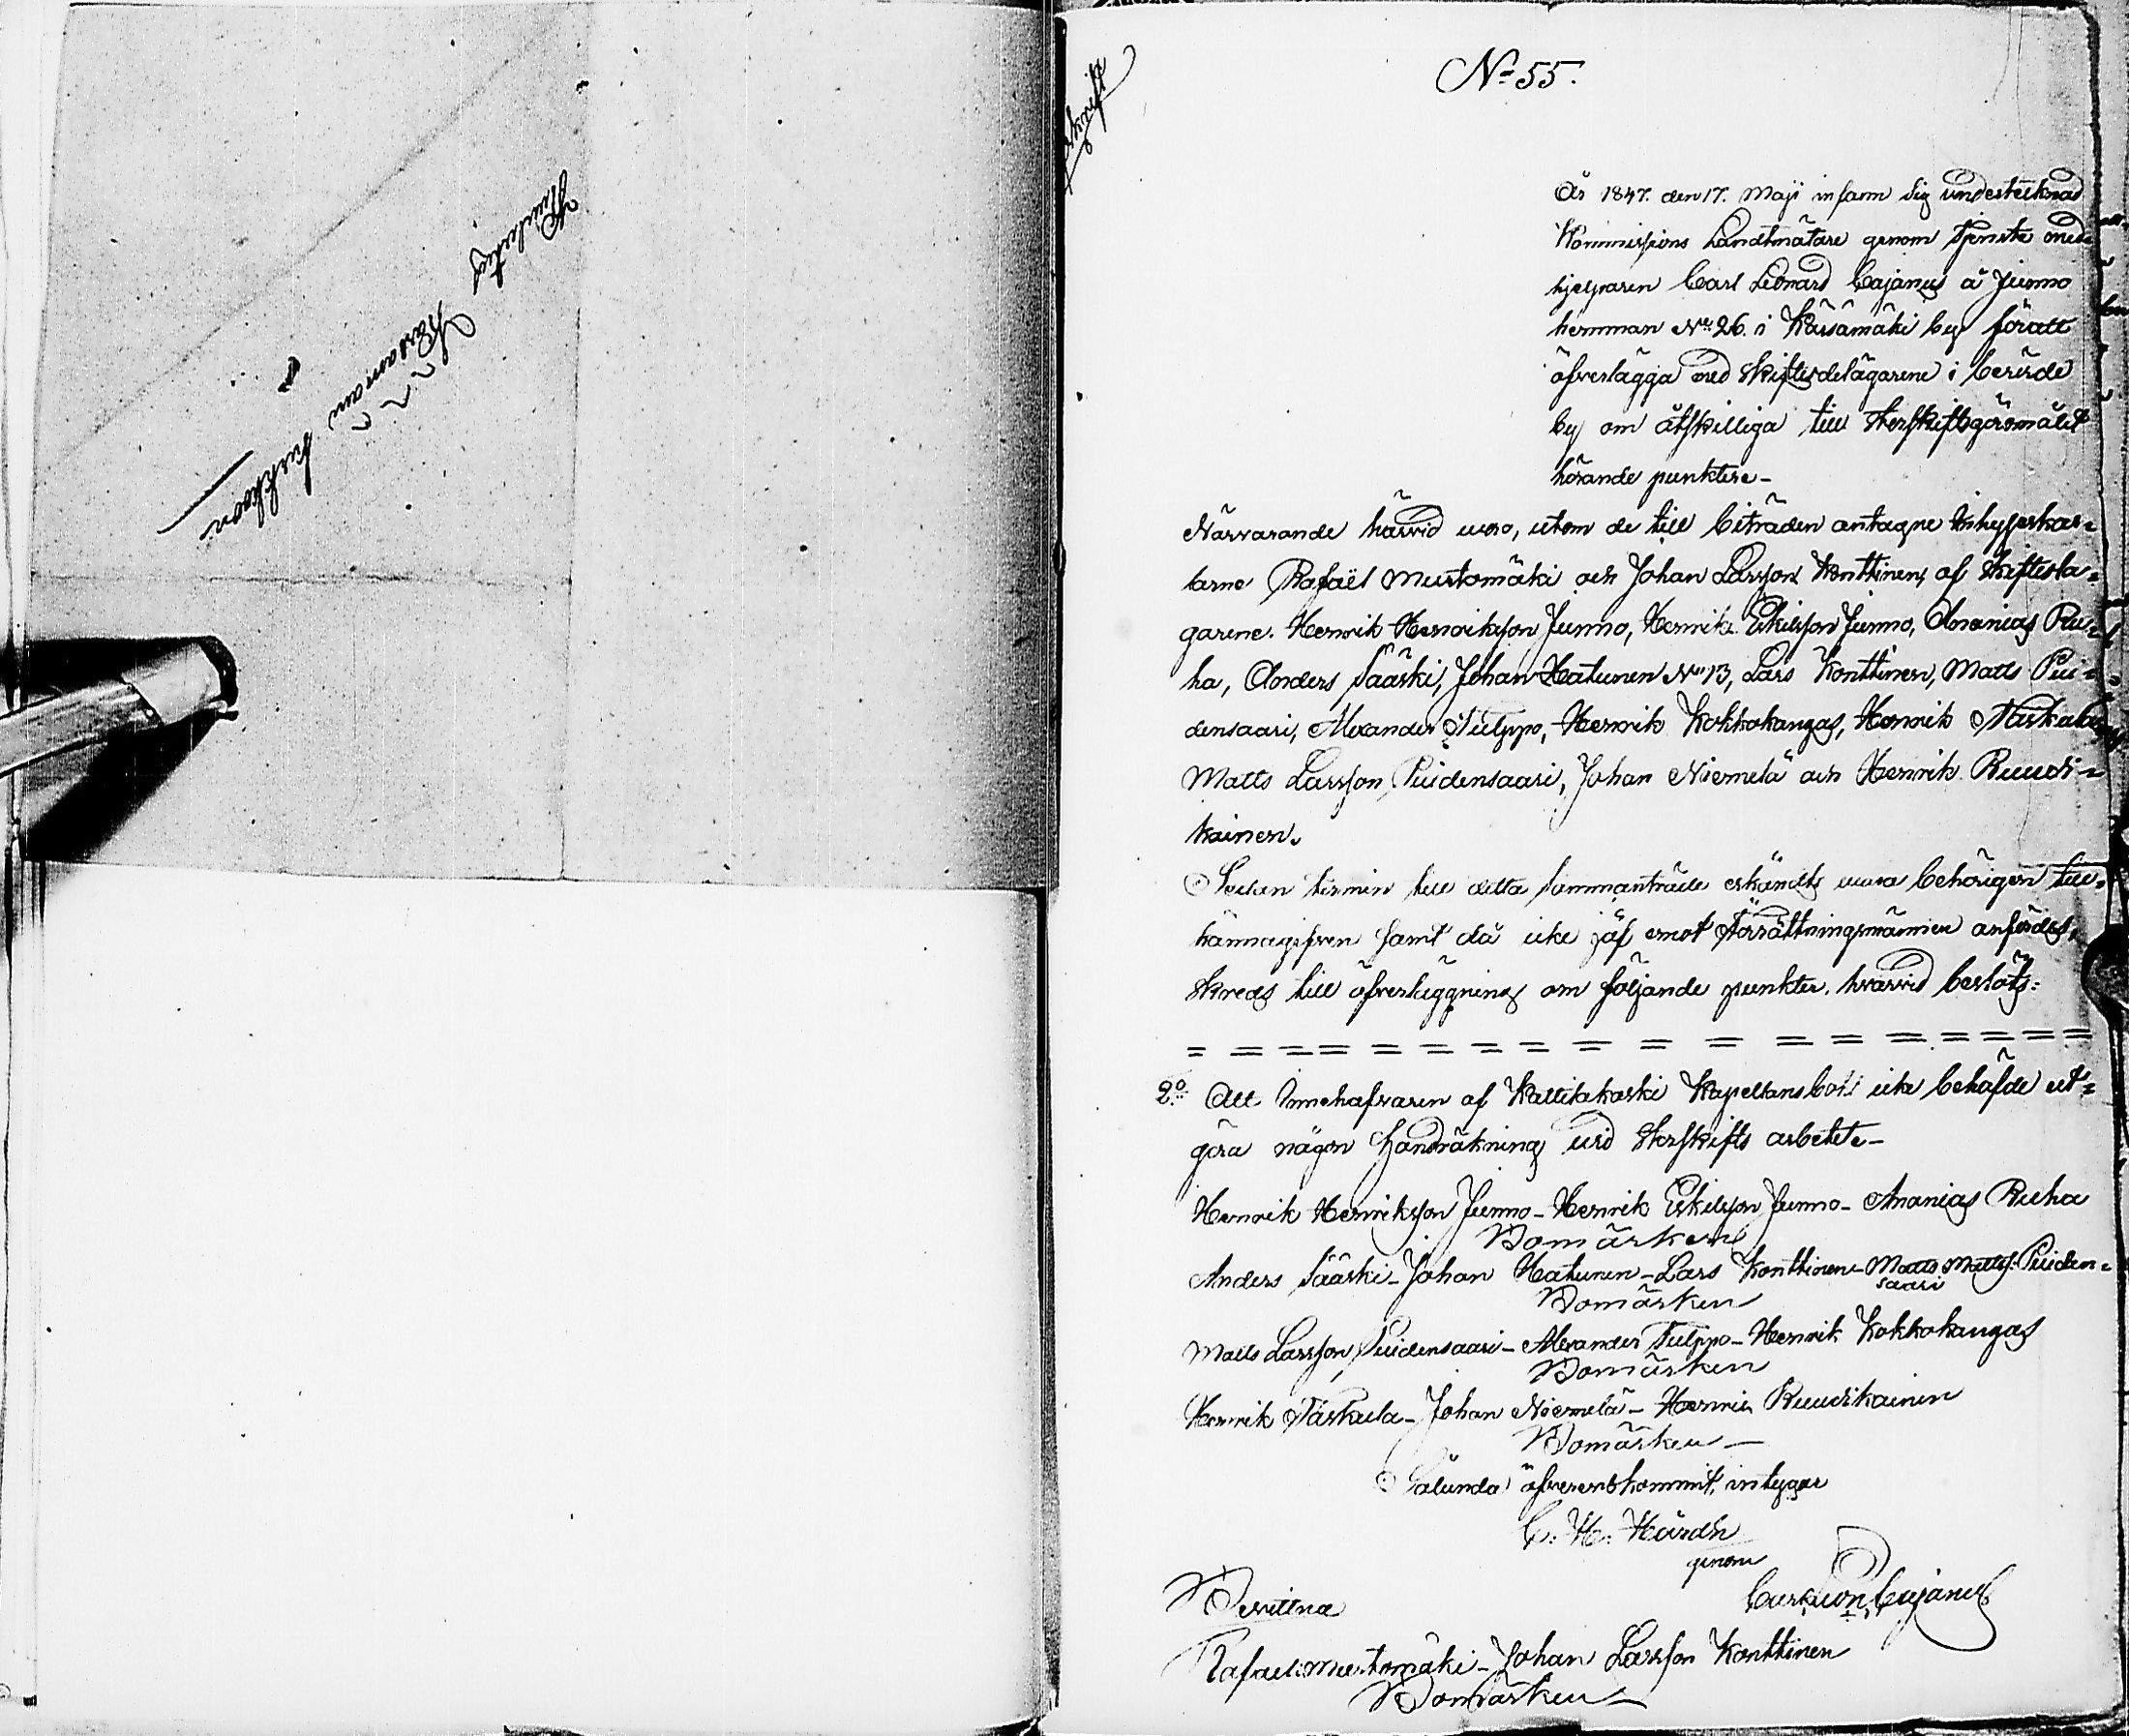 Kuuluttaa
Kärsämän
lukkoon
Afskrift
No 55.
År 1847. den 17. Maji infann sig undertecknad
Kommissions Landtmätare genom tjenste med-
hjelparen Carl Leonard Cajanus å Junno
hemman No 26. i Kärsämäki by föratt
öfverlägga med skiftesdelägarene i berörde
by om åtskilliga till storskiftsgöromålet
hörande punkter-
Närvarande härvid woro, utom de till biträden antagne Inhyseskar-
larne Rafaël Mustomäki och Johan Larsson Konttinen, af skiftesla-
garene. Henrik Henriksson Junno, Henrik Eskilsson Junno, Ananias Ru-
ha, Anders Sääski, Johan Hatunen No 13, Lars Konttinen, Matts Pui-
densaari, Alexander Tulppo, Henrik Kokkokangas, Henrik Taskula
Matts Larsson Puidensaari, Johan Niemelä och Henrik Ruuti-
kainen.
Sedan termin till detta sammanträde erkändts wara behörigen till-
kännagifven samt då icke jäf emot Förrättningsmännen anfördes,
skreds till öfverläggning om följande punkter. hvarvid beslöts:
2o Att Innehafvaren af Kattilakoski Kapellansbol icke behöfde ut-
göra någon handräkning wid storskifts arbetet-
Henrik Henriksson Junno- Henrik Eskilsson Junno- Ananias Ruha
Bomärken
Anders Sääski- Johan Hatunen- Lars Konttinen- Matts Matts: Puiden-
saari
Bomärken
Matts Larsson Puidensaari- Alexander Tulppo- Henrik Kokkokangas
Bomärken
Henrik Taskula- Johan Niemelä- Henrik Ruutikainen
Bomärken-
Sålunda öfverenskommit, intygar
C. H. Hårdh
genom
Carl Leon. Cajanus
Bevittna
Rafael Mustomäki- Johan Larsson Konttinen
Bomärken-